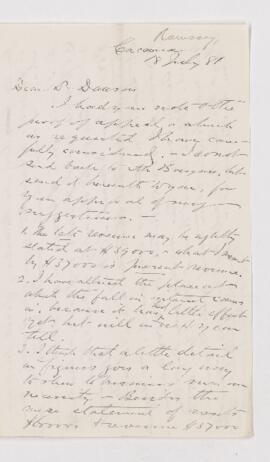 Ramsay
Cacouna
18 July 81
Dear Dr Dawson
I had your note & the
proof of appeal, which
as requested I have care-
fully considered, & do not
send back to Mr
send it herewith to you, for
your approval of my
suggestions. —
1. The late revenue may be rightly
stated at $39000, & what I meant
by $37000 is present revenue.
2. I have altered the place at
which the fall in interest comes
in, because it has little effect
yet but will in next year
till.
3. I think that a little detail
in figures goes a long way
to show to business men our
necessity — Besides the
mere statement of
revenue $37000